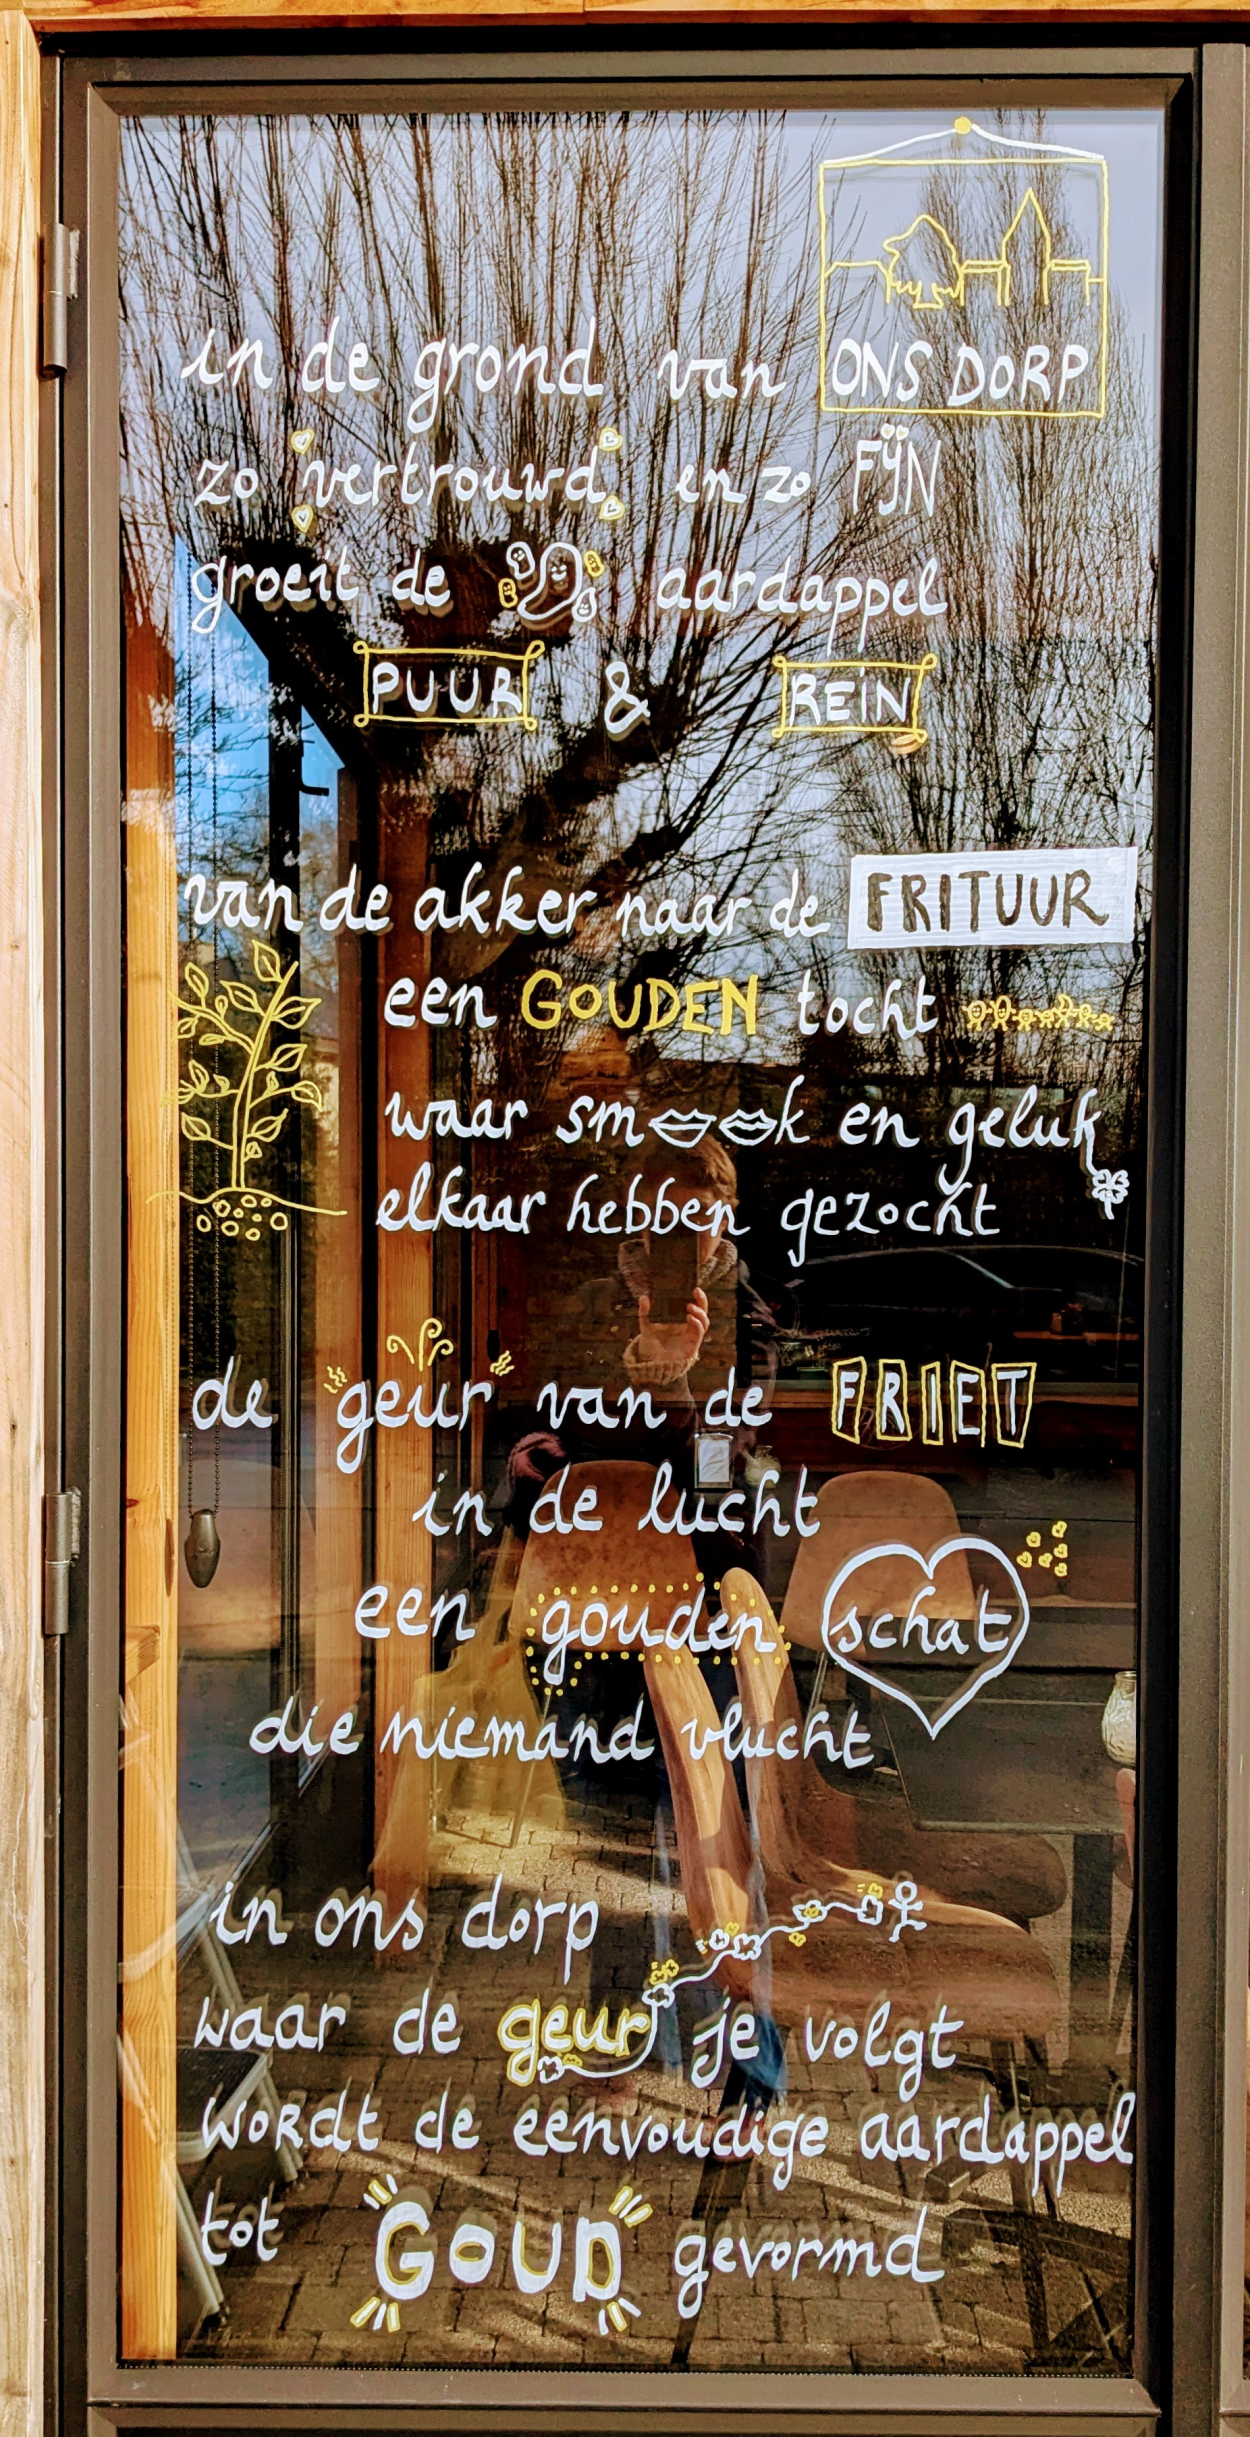 in de grond van ONS DORP
zo vertrouwd en zo FIJN
groeit de aardappel
PUUR & REIN
van de akker naar de FRITUUR
een GOUDEN tocht
waar smaak en geluk
elkaar hebben gezocht
de geur van de FRIET
in de lucht
een gouden schat
die niemand vlucht
in ons dorp
waar de geur je volgt
wordt de eenvoudige aardappel
tot GOUD gevormd